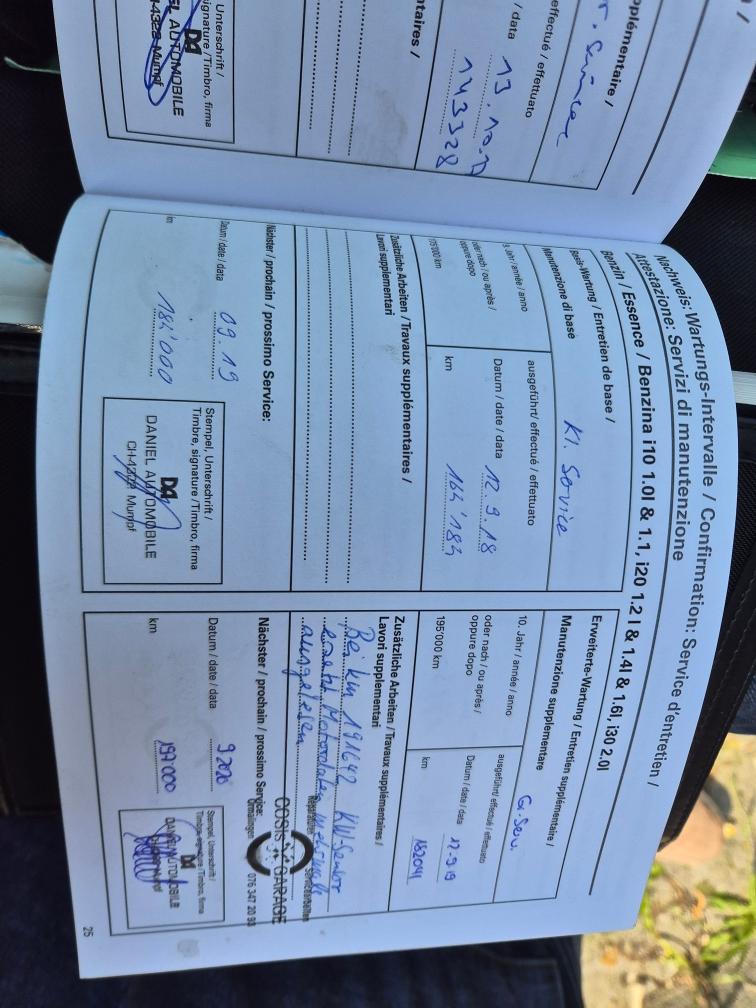 plémentaire /
r. Service
effectué / effettuato
/ data
13.10.17
143328
ntaires /
Unterschrift /
signature / Timbro, firma
DA
EL AUTOMOBILE
H-4322 Mumpf
Nachweis: Wartungs-Intervalle / Confirmation: Service d'entretien /
Attestazione: Servizi di manutenzione
Benzin / Essence / Benzina i10 1.0l & 1.1, i20 1.2 l & 1.4l & 1.6l, i30 2.0l
Basis-Wartung / Entretien de base /
Manutenzione di base
Kl. Service
9. Jahr / année / anno
oder nach / ou après /
oppure dopo
175'000 km
ausgeführt/ effectué / effettuato
Datum / date / data 12.9.18
km 164'184
Zusätzliche Arbeiten / Travaux supplémentaires /
Lavori supplementari
Nächster / prochain / prossimo Service:
Datum / date / data 09.19
km 184'000
Stempel, Unterschrift /
Timbre, signature /Timbro, firma
DA
DANIEL AUTOMOBILE
CH-4322 Mumpf
Erweiterte-Wartung / Entretien supplémentaire /
Manutenzione supplementare
G. Serv.
10. Jahr / année / anno
oder nach / ou après /
oppure dopo
195'000 km
ausgeführt / effectué / effettuato
Datum / date / data 17.9.19
km 182041
Zusätzliche Arbeiten / Travaux supplémentaires /
Lavori supplementari
Bei km 191642 KW Sensor
ersetzt Motordaten
ausgelesen
Reparaturen Servicearbeiten
COSIS GARAGE
076 347 20 93
Nächster / prochain / prossimo Service:
Datum / date / data 9.2020
km 197000
Stempel, Unterschrift /
Timbre, signature /Timbro, firma
DA
DANIEL AUTOMOBILE
25